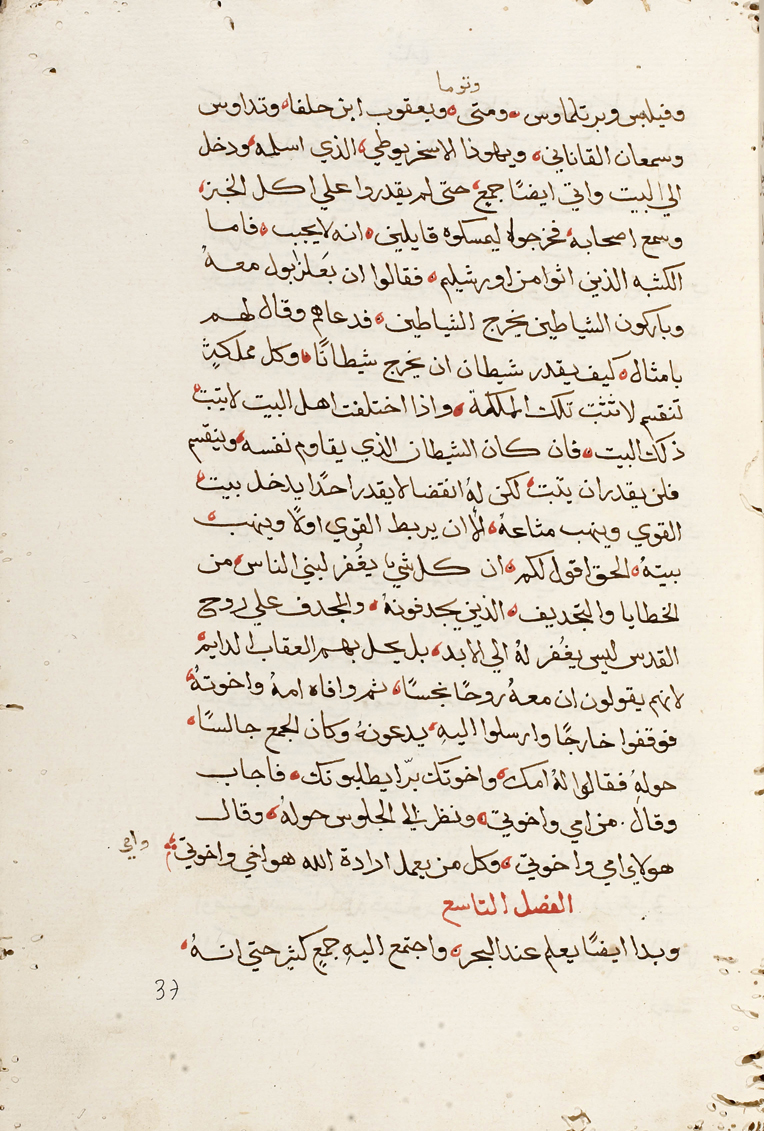 وتوما
وفيلبس وبرتلماوس ومتى ويعقوب ابن حلفا وتداوس
وسمعان القاناني ويهوذا الاسخريوطي الذي اسلمه ودخل
الي البيت واتي ايضًا جمع حتى لم يقدروا علي اكل الخبز
وسمع اصحابه فخرجوا ليمسكوه قايلين انه لايجيب فاما
الكتبه الذين اتوا من اورشليم فقالوا ان بَعلزبول معهُ
وباركون الشياطين يخرج الشياطين فدعاهم وقال لهم
بامثال كيف يقدر شيطان ان يخرج شيطانًا وكل مملكةٍ
تنقسم لا تثبت تلك المملكة واذا اختلفت اهل البيت لايثبت
ذلك البيت فان كان الشيطان الذي يقاوم نفسه وينقسم
فلن يقدر ان يثبت لكن لهُ انقضا لايقدر احدًا يدخل بيت
القوي وينهب متاعهُ الا ان يربط القوي اولًا وينهب
بيتهُ الحق اقول لكم ان كل شيء يغُفر لبني الناس من
الخطايا والتجديف الذين يجدفونهُ والمجدف علي روح
القدس ليس يغُفر لهُ الي الابد بل يحل بهم العقاب الدايم
لانهم يقولون ان معهُ روحًا نجسًا ثم وافاه امهُ واخوتهُ
فوقفوا خارجًا وارسلوا اليهِ يدعونهُ وكان الجمع جالسًا
حولهُ فقالوا لهُ امك واخوتك برّا يطلبونك فاجاب
وقال . من امي واخوتي ونظر الي الجلوس حولهُ وقال
هولاي امي واخوتي وكل من يعمل ارادة الله هو اخي واخوتي
وامي
الفصل التاسع
وبدا ايضًا يعلم عند البحر واجتمع اليهِ جمع كثير حتي انهُ
37